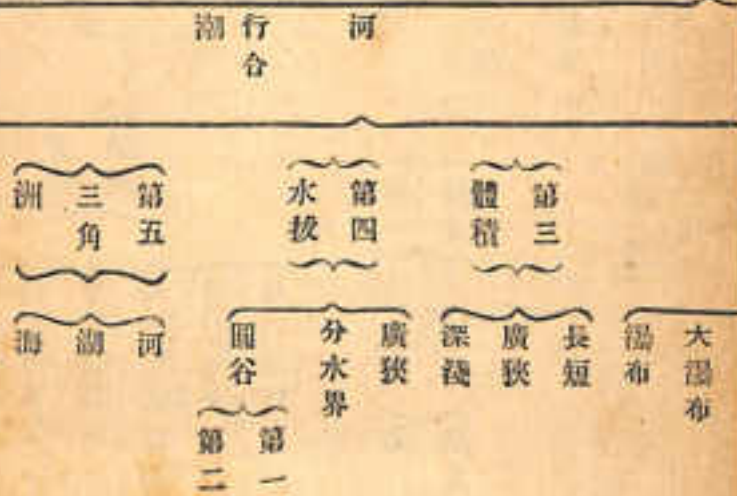 河
行合
潮
第三
體積
第四
水拔
第五
三角
洲
大瀑布
瀑布
長短
廣狹
深淺
廣狹
分水界
圓谷
第一
第二
河
湖
海